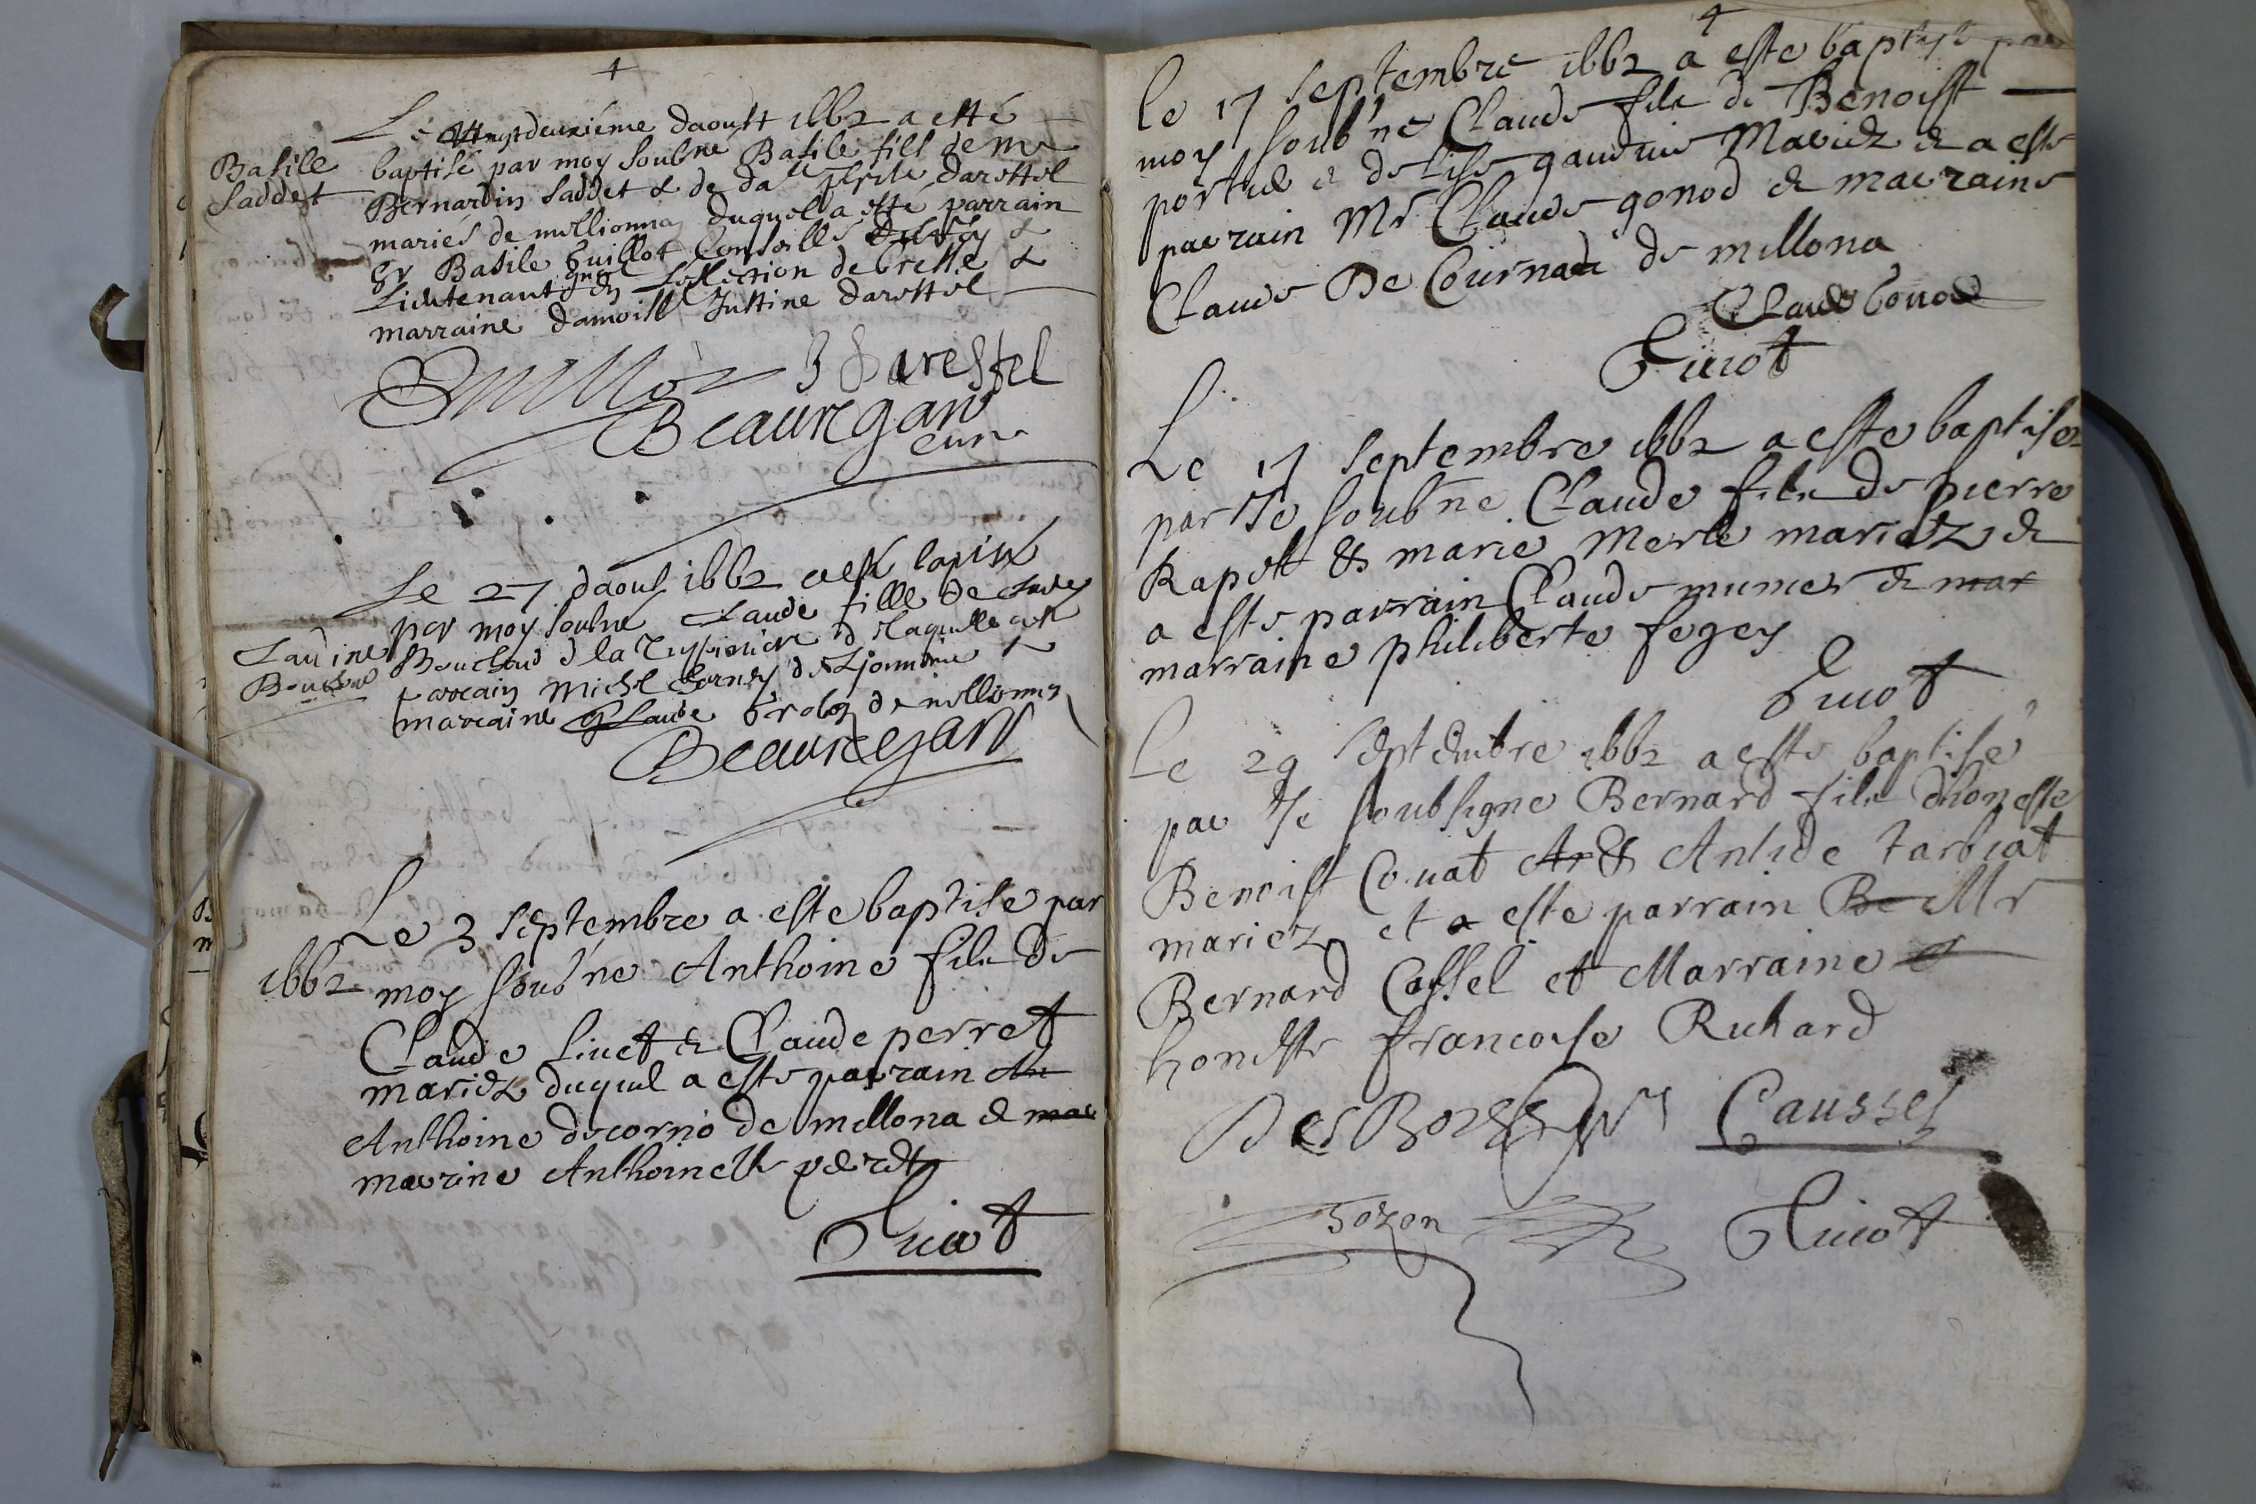 Le vingt deuxiéme daoust 1662 a esté
Basile
Saddet
baptisé par moy soubne Basile fils de mr
Bernardin Saddet & de dalle darestel
mariés de mellionna duquel a esté parrain
Sr Basile Guillot Conseille du Roy &
Lieutenant gnal en Lellection de bresse &
marraine damoille Justine darestel
Guillot J Darestel
Beauregard
cure
Le 27 daoust 1662 a este baptize
par moy soubne Claude fille de
Claudine
Bouchoud
Bouchoud de la & de laquelle a este
parrain Michel de &
marraine Claude de mellionna
Beauregard
Le 3 septembre a este baptise par
1662
moy soubne Anthoine filz de
Claude Livet & Claude perret
mariez duquel a este parrain An
Anthoine decorno de mellona & mar
marine Anthoinette perret
Guiot
Le 17 septembre 1662 a este baptisé par
moy soub'ne Claude filz de Benoist
& de Lise mariez & a este
parrain Mr Claude gonod & marraine
Claude De Cournadi de mellona
Claude Gonod
Guiot
Le 17 septembre 1662 a este baptisez
par Je soub'ne Claude filz de pierre
Rapelt & marie Merle mariez &
a este parrain Claude mumer & mar
marraine philiberte fegey
Guiot
Le 29 septembre 1662 a este baptisé
par Je soubsigne Bernard filz dhoneste
Benoist Couat Ar & Antide tarbiat
mariez et a este parrain Be Mr
Bernard Cassel et Marraine &
honeste francoise Richard
Caussel
Gozon Guiot